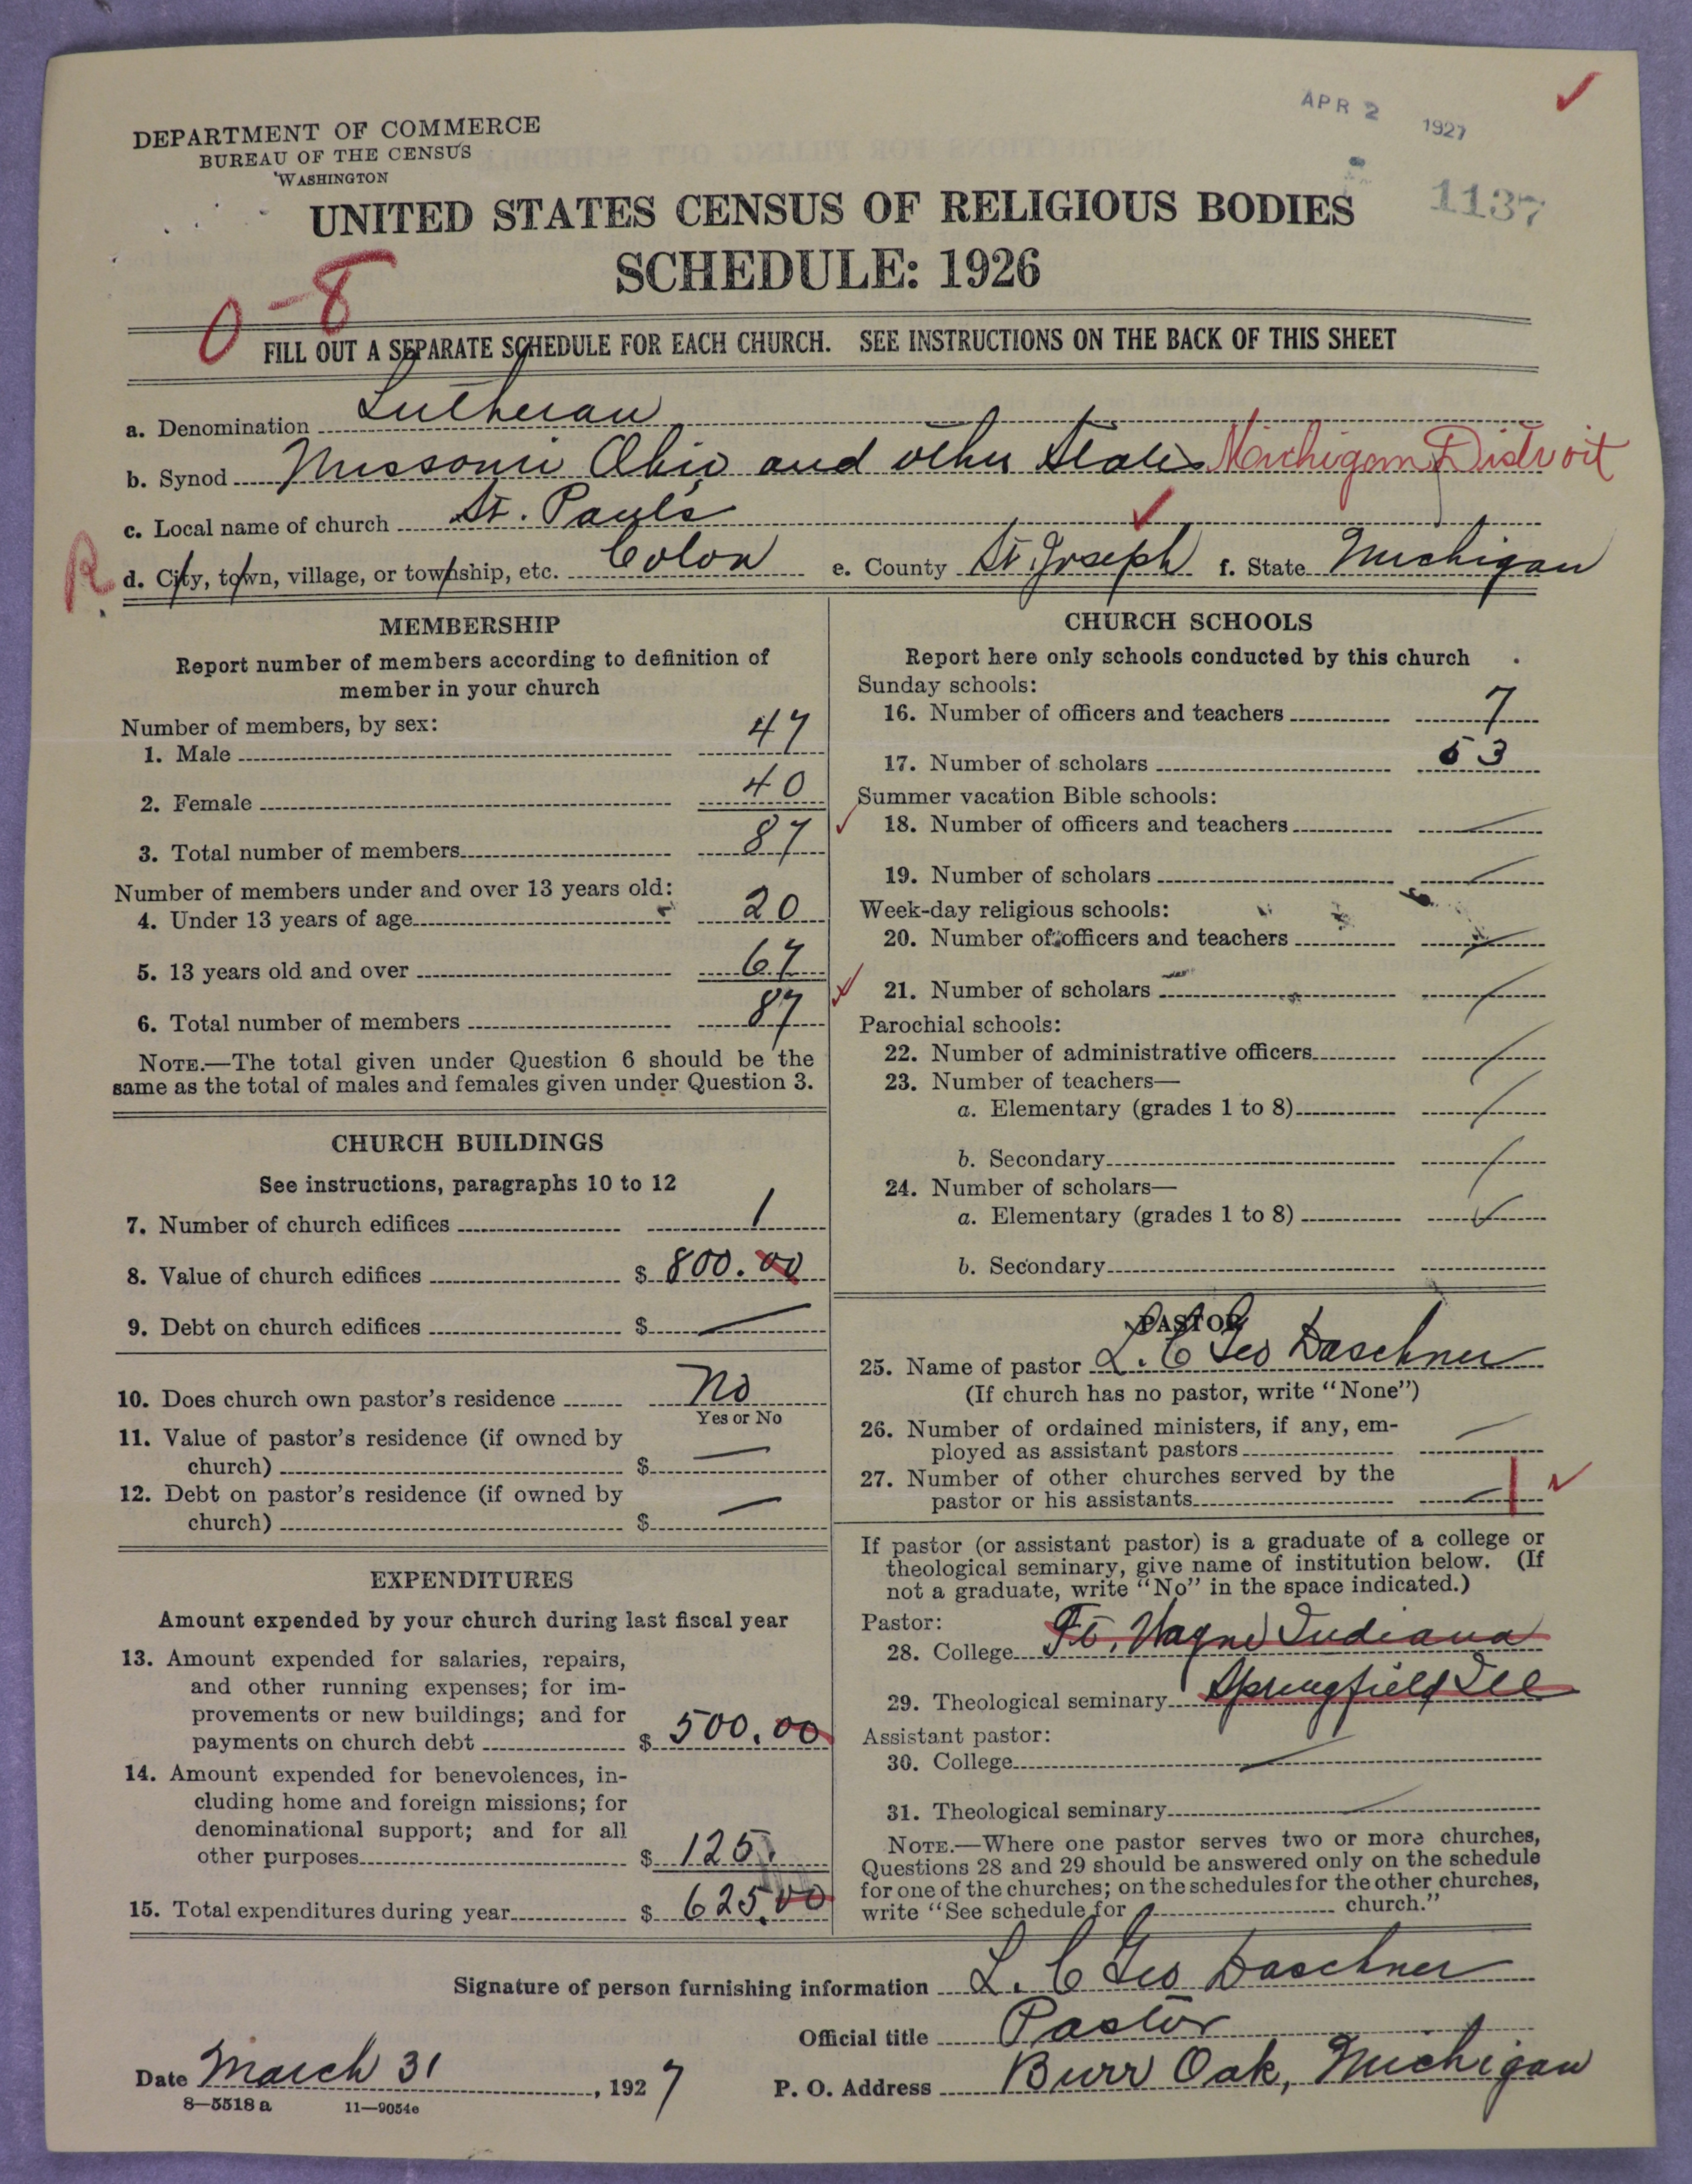 APR 2 1927
DEPARTMENT OF COMMERCE
BUREAU OF THE CENSUS
WASHINGTON
1137
UNITED STATES CENSUS OF RELIGIOUS BODIES
SCHEDULE: 1926
0-8
FILL OUT A SEPARATE SCHEDULE FOR EACH CHURCH. SEE INSTRUCTIONS ON THE BACK OF THIS SHEET
a. Denomination Lutheran
b. Synod Missouri Ohio and other States Michigan District
c. Local name of church St. Paul's
R
d. City, town, village, or township, etc. Colon e. County St. Joseph f. State Michigan
MEMBERSHIP
Report number of members according to definition of
member in your church
Number of members, by sex:
1. Male 47
2. Female 40
3. Total number of members 87
Number of members under and over 13 years old:
4. Under 13 years of age 20
5. 13 years old and over 67
6. Total number of members 87
NOTE.—The total given under Question 6 should be the
same as the total of males and females given under Question 3.
CHURCH BUILDINGS
See instructions, paragraphs 10 to 12
7. Number of church edifices 1
8. Value of church edifices $ 800.00
9. Debt on church edifices $ —
10. Does church own pastor's residence No
Yes or No
11. Value of pastor's residence (if owned by
church) $ —
12. Debt on pastor's residence (if owned by
church) $ —
EXPENDITURES
Amount expended by your church during last fiscal year
13. Amount expended for salaries, repairs,
and other running expenses; for im-
provements or new buildings; and for
payments on church debt $ 500.00
14. Amount expended for benevolences, in-
cluding home and foreign missions; for
denominational support; and for all
other purposes $ 125.
15. Total expenditures during year $ 625.00
CHURCH SCHOOLS
Report here only schools conducted by this church
Sunday schools:
16. Number of officers and teachers 7
17. Number of scholars 53
Summer vacation Bible schools:
18. Number of officers and teachers —
19. Number of scholars —
Week-day religious schools:
20. Number of officers and teachers —
21. Number of scholars —
Parochial schools:
22. Number of administrative officers —
23. Number of teachers—
a. Elementary (grades 1 to 8) —
b. Secondary —
24. Number of scholars—
a. Elementary (grades 1 to 8) —
b. Secondary
PASTOR
25. Name of pastor L. C Geo Daschner
(If church has no pastor, write "None")
26. Number of ordained ministers, if any, em-
ployed as assistant pastors —
27. Number of other churches served by the
pastor or his assistants 1
If pastor (or assistant pastor) is a graduate of a college or
theological seminary, give name of institution below. (If
not a graduate, write "No" in the space indicated.)
Pastor:
28. College Ft. Wayne Indiana
29. Theological seminary Springfield Ill
Assistant pastor:
30. College —
31. Theological seminary —
NOTE.—Where one pastor serves two or more churches,
Questions 28 and 29 should be answered only on the schedule
for one of the churches; on the schedules for the other churches,
write "See schedule for church."
Signature of person furnishing information L. C Geo Daschner
Official title Pastor
Date March 31, 1927 P. O. Address Burr Oak, Michigan
8—5518 a 11—9054e